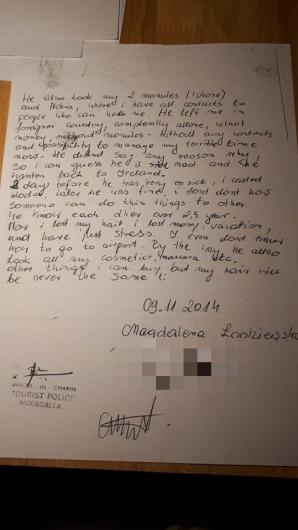 He also took my 2 mobules (iphone)
and Nokia, where i have all contacts to
people who can help me. He left me in
foregner country, complently allone, without
money, without mobules - Without any contacts
and possibility to manage my terrible time
now. He didnt say any reason why,
so i can guess he is mad and she
wanted back to Ireland.
day before he was very sick, i called
doctor later he was fine, i dont
someone can do this things to other
We know each other over 2,5 year.
Now i lost my hair, i lost money, vacation,
and have just stress. I even dont know
how to go to airport. By the way he allso
took all my cosmetics, mascara etc.
other things i can buy, but my hair will
be never the same :(
09.11.2014
Magdalena
OFFICER - IN - CHARGE
TOURIST POLICE